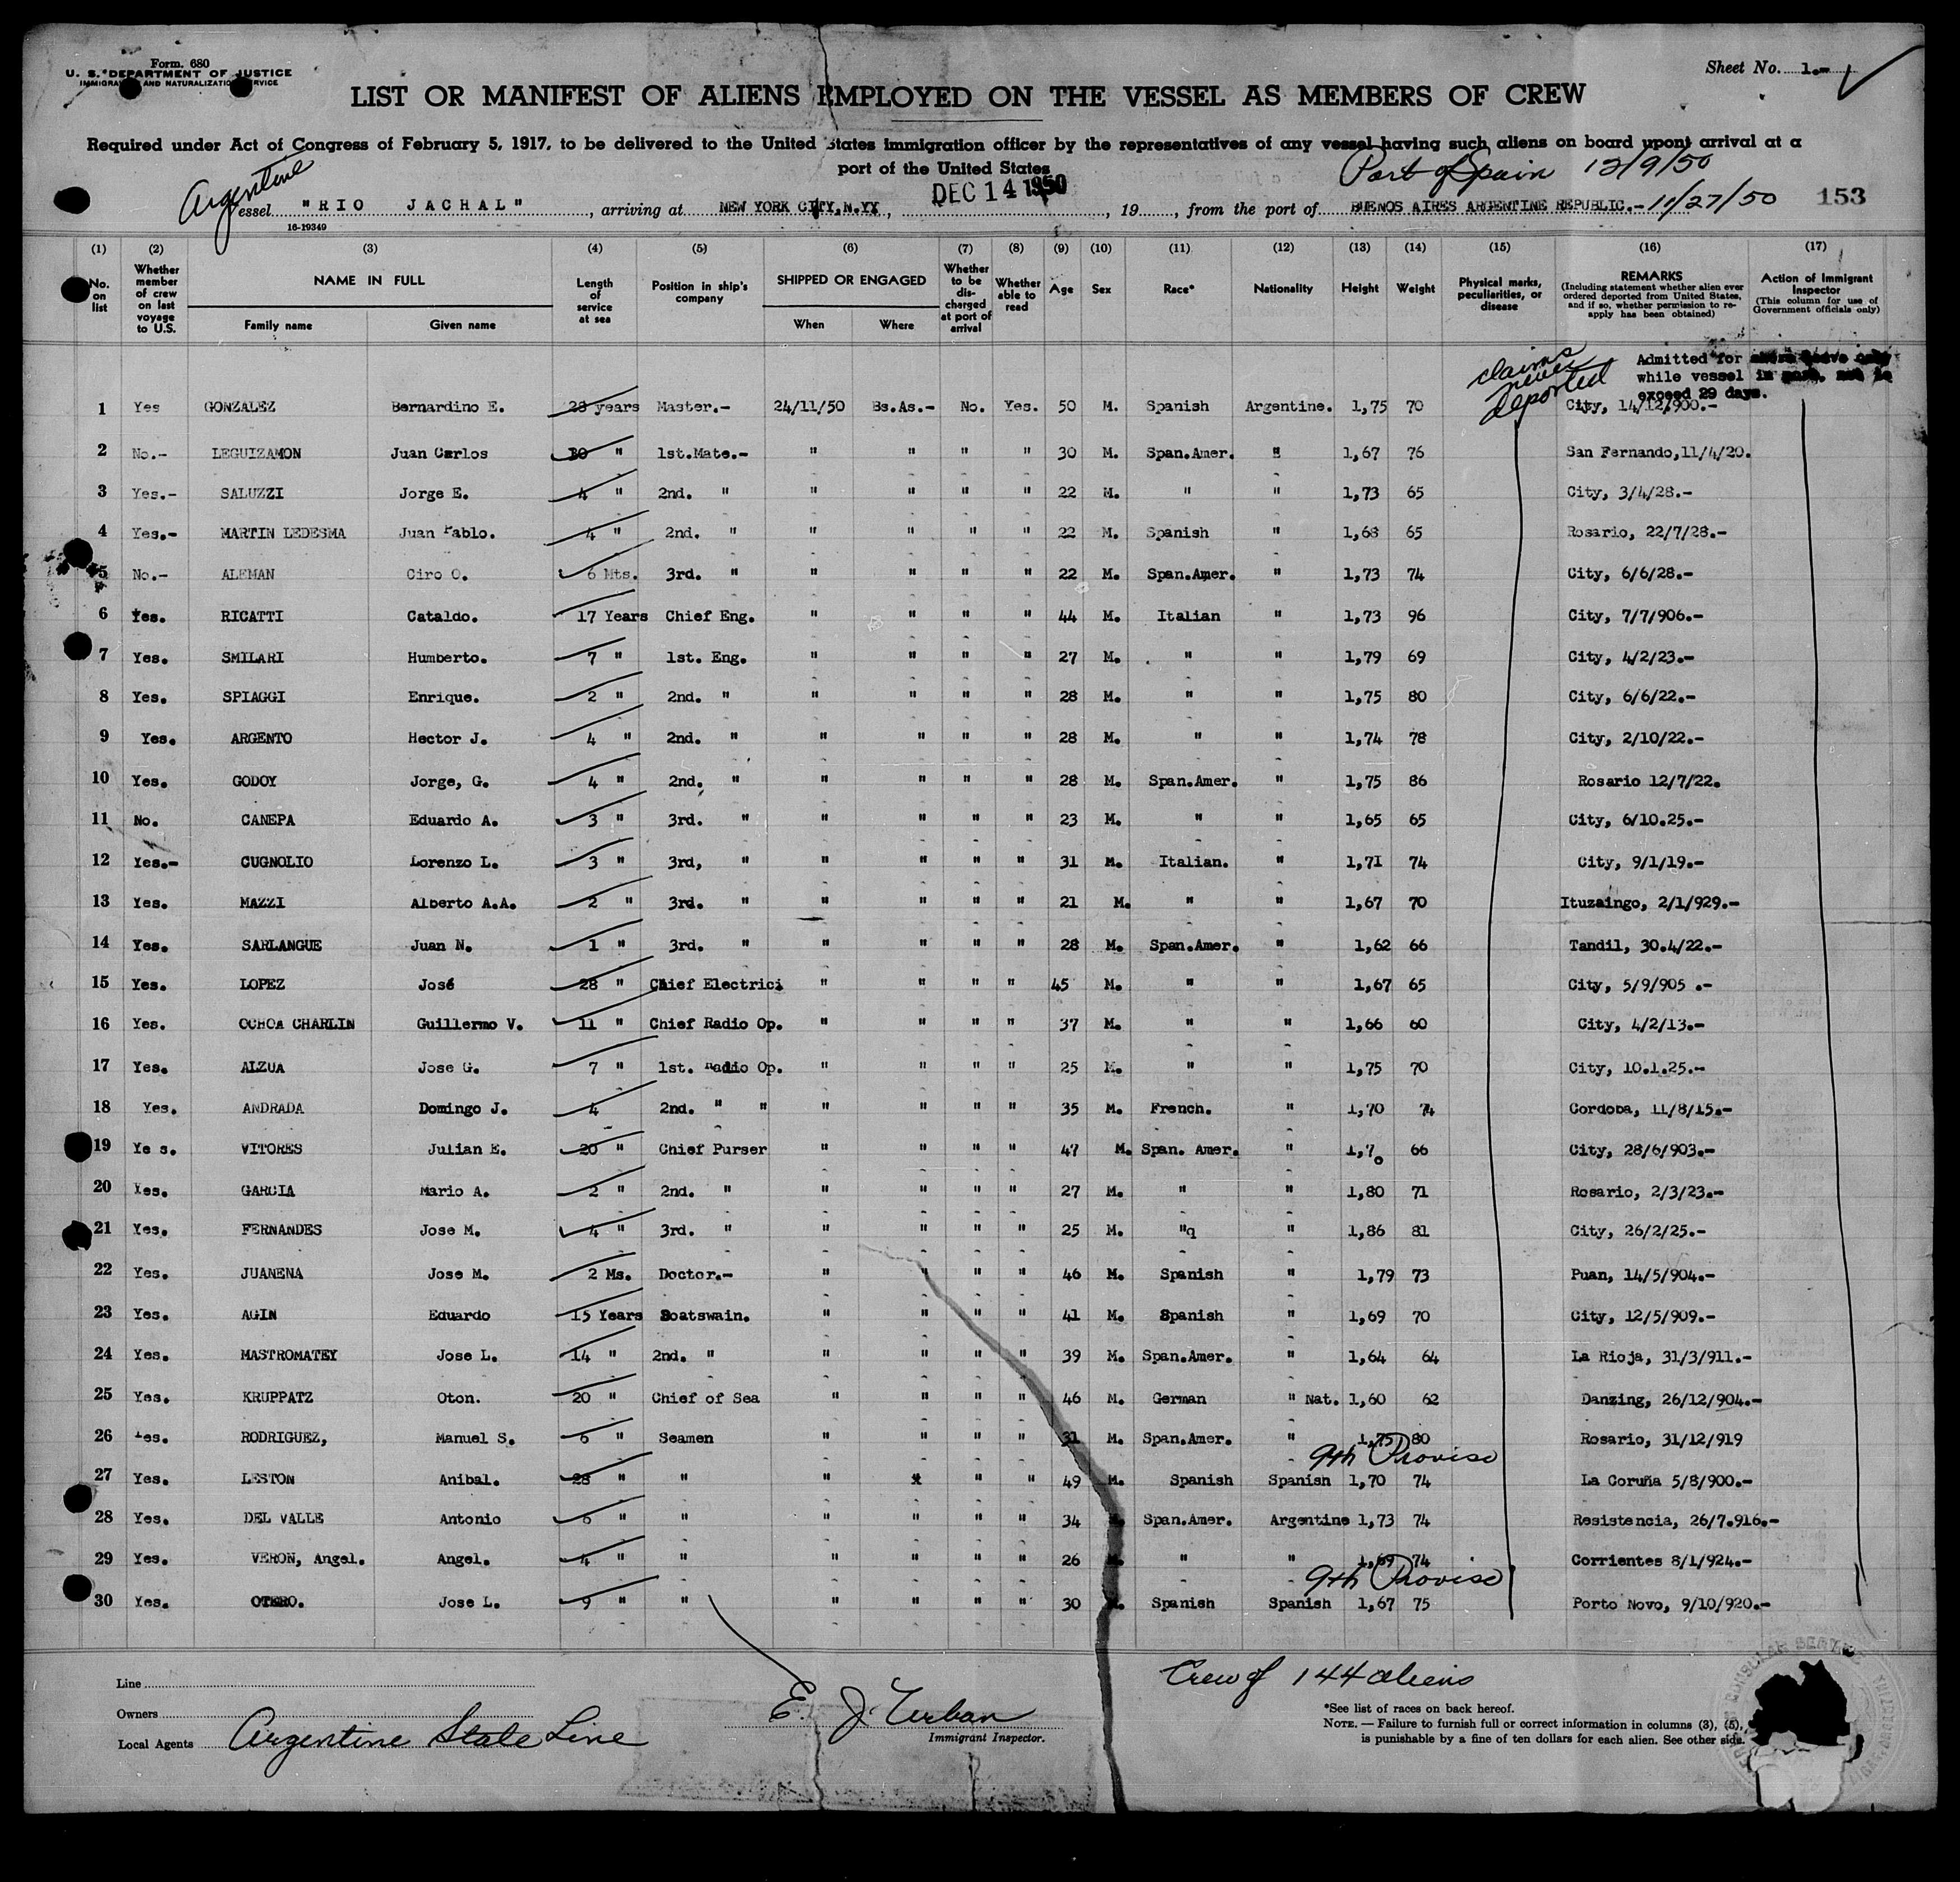 Form. 680
U. S. DEPARTMENT OF JUSTICE
IMMIGRATION AND NATURALIZATION SERVICE
Sheet No. 1.-
LIST OR MANIFEST OF ALIENS EMPLOYED ON THE VESSEL AS MEMBERS OF CREW
Required under Act of Congress of February 5, 1917, to be delivered to the United States immigration officer by the representatives of any vessel having such aliens on board upont arrival at a
port of the United States
Port of Spain 12/9/50
Argentine
essel "RIO JACHAL", arriving at NEW YORK CITY,N.YY, DEC 14 1950, 19, from the port of BUENOS AIRES ARGENTINE REPUBLIC.- 11/27/50 153
16-19349
(1) (2) (3) (4) (5) (6) (7) (8) (9) (10) (11) (12) (13) (14) (15) (16) (17)
No. on list
Whether member of crew on last voyage to U.S.
NAME IN FULL
Family name Given name
Length of service at sea
Position in ship's company
SHIPPED OR ENGAGED
When Where
Whether to be discharged at port of arrival
Whether able to read
Age Sex Race* Nationality Height Weight
Physical marks, peculiarities, or disease
REMARKS
(Including statement whether alien ever ordered deported from United States, and if so, whether permission to reapply has been obtained)
Action of Immigrant Inspector
(This column for use of Government officials only)
claims never deported
Admitted for shore leave only
while vessel in port, not to
exceed 29 days.
1 Yes GONZALEZ Bernardino E. 28 years Master.- 24/11/50 Bs.As.- No. Yes. 50 M. Spanish Argentine. 1,75 70 City, 14/12/900.-
2 No.- LEGUIZAMON Juan Carlos 10 " 1st.Mate.- " " " " 30 M. Span.Amer. " 1,67 76 San Fernando,11/4/20.
3 Yes.- SALUZZI Jorge E. 4 " 2nd. " " " " " 22 M. " " 1,73 65 City, 3/4/28.-
4 Yes.- MARTIN LEDESMA Juan Pablo. 4 " 2nd. " " " " " 22 M. Spanish " 1,68 65 Rosario, 22/7/28.-
5 No.- ALEMAN Ciro O. 6 Mts. 3rd. " " " " " 22 M. Span.Amer. " 1,73 74 City, 6/6/28.-
6 Yes. RICATTI Cataldo. 17 Years Chief Eng. " " " " 44 M. Italian " 1,73 96 City, 7/7/906.-
7 Yes. SMILARI Humberto. 7 " 1st. Eng. " " " " 27 M. " " 1,79 69 City, 4/2/23.-
8 Yes. SPIAGGI Enrique. 2 " 2nd. " " " " " 28 M. " " 1,75 80 City, 6/6/22.-
9 Yes. ARGENTO Hector J. 4 " 2nd. " " " " " 28 M. " " 1,74 78 City, 2/10/22.-
10 Yes. GODOY Jorge, G. 4 " 2nd. " " " " " 28 M. Span.Amer. " 1,75 86 Rosario 12/7/22.
11 No. CANEPA Eduardo A. 3 " 3rd. " " " " " 23 M. " " 1,65 65 City, 6/10.25.-
12 Yes.- CUGNOLIO Lorenzo L. 3 " 3rd, " " " " " 31 M. Italian. " 1,71 74 City, 9/1/19.-
13 Yes. MAZZI Alberto A.A. 2 " 3rd. " " " " " 21 M. " " 1,67 70 Ituzaingo, 2/1/929.-
14 Yes. SARLANGUE Juan N. 1 " 3rd. " " " " " 28 M. Span.Amer. " 1,62 66 Tandil, 30.4/22.-
15 Yes. LOPEZ José 28 " Chief Electrici " " " " 45 M. " " 1,67 65 City, 5/9/905 .-
16 Yes. OCHOA CHARLIN Guillermo V. 11 " Chief Radio Op. " " " " 37 M. " " 1,66 60 City, 4/2/13.-
17 Yes. ALZUA Jose G. 7 " 1st. Radio Op. " " " " 25 M. " " 1,75 70 City, 10.1.25.-
18 Yes. ANDRADA Domingo J. 4 2nd. " " " " " " 35 M. French. " 1,70 74 Cordoba, 11/8/15.-
19 Ye s. VITORES Julian E. 20 " Chief Purser " " " " 47 M. Span. Amer. " 1,70 66 City, 28/6/903.-
20 Yes. GARCIA Mario A. 2 " 2nd. " " " " " 27 M. " " 1,80 71 Rosario, 2/3/23.-
21 Yes. FERNANDES Jose M. 4 " 3rd. " " " " " 25 M. "q " 1,86 81 City, 26/2/25.-
22 Yes. JUANENA Jose M. 2 Ms. Doctor.- " " " " 46 M. Spanish " 1,79 73 Puan, 14/5/904.-
23 Yes. AGIN Eduardo 15 Years Boatswain. " " " " 41 M. Spanish " 1,69 70 City, 12/5/909.-
24 Yes. MASTROMATEY Jose L. 14 " 2nd. " " " " " 39 M. Span.Amer. " 1,64 64 La Rioja, 31/3/911.-
25 Yes. KRUPPATZ Oton. 20 " Chief of Sea " " " " 46 M. German " Nat. 1,60 62 Danzing, 26/12/904.-
26 Yes. RODRIGUEZ, Manuel S. 6 " Seamen " " " " 31 M. Span.Amer. " 1,75 80 Rosario, 31/12/919
9th Proviso
27 Yes. LESTON Anibal. 28 " " " " " " 49 M. Spanish Spanish 1,70 74 La Coruña 5/8/900.-
28 Yes. DEL VALLE Antonio 6 " " " " " " 34 M. Span.Amer. Argentine 1,73 74 Resistencia, 26/7.916.-
29 Yes. VERON, Angel. Angel. 4 " " " " " " 26 M. " " 1,69 74 Corrientes 8/1/924.-
9th Proviso
30 Yes. OTERO. Jose L. 9 " " " " " " 30 M. Spanish Spanish 1,67 75 Porto Novo, 9/10/920.-
Line
Owners
Local Agents Argentine State Line
E. J. Urban
Immigrant Inspector.
Crew of 144 aliens
*See list of races on back hereof.
NOTE. — Failure to furnish full or correct information in columns (3), (5),
is punishable by a fine of ten dollars for each alien. See other side.